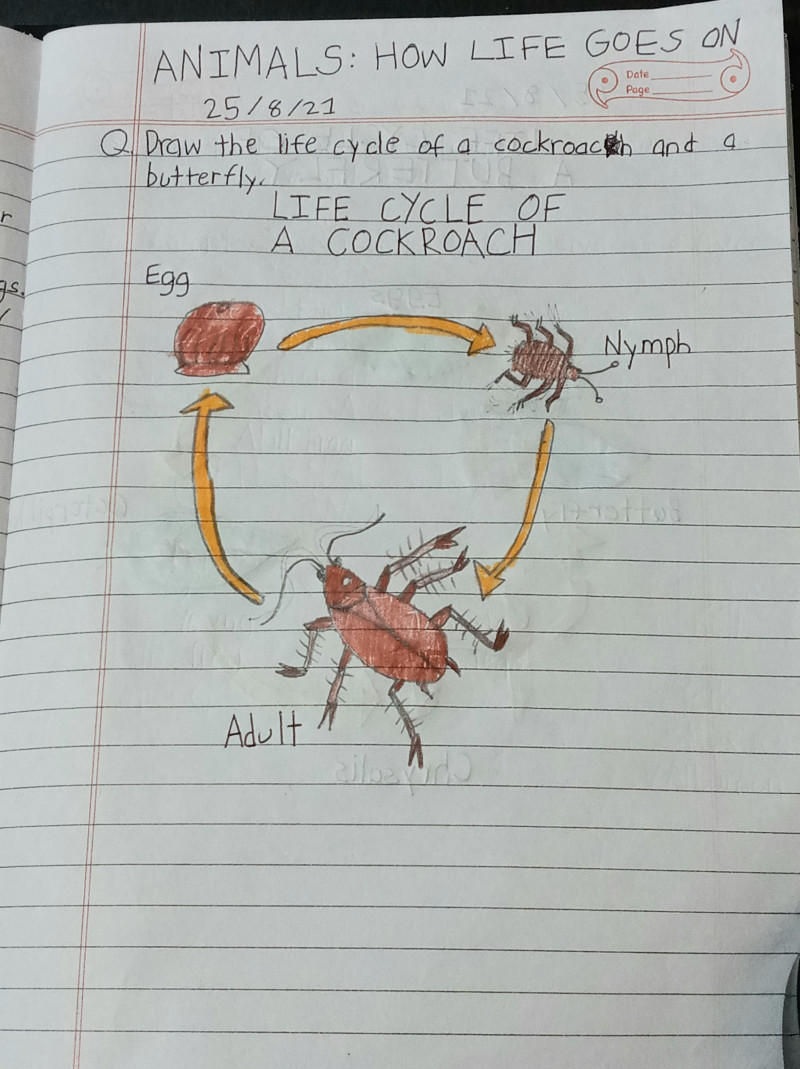 ANIMALS: HOW LIFE GOES ON
Date
Page
25/8/21
Q. Draw the life cycle of a cockroach and a
butterfly.
LIFE CYCLE OF
A COCKROACH
Egg
Nymph
Adult
r
gs.
Eggs
Butterfly
Chrysalis